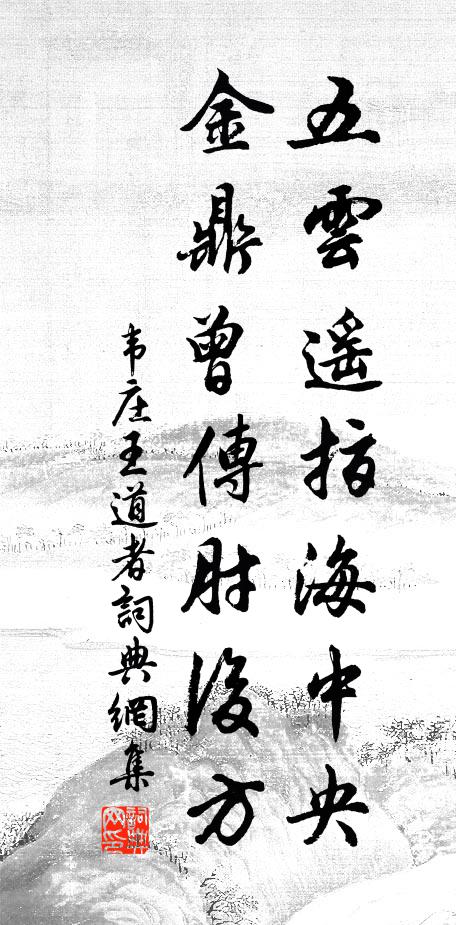 五雲遥指海中央
金鼎曾傳肘後方
韦庄王道者詞典網集